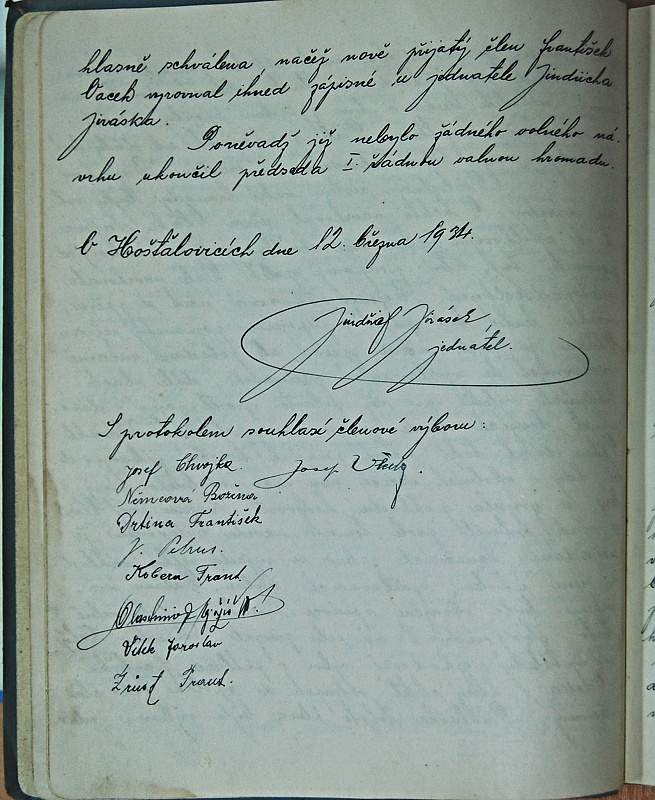 hlasně schválena, načež nově přijatý člen František
Vacek vyrovnal ihned zápisné u jednatele Jindřicha
Jiráska.
Poněvadž již nebylo žádného volného ná-
vrhu ukončil předseda I. řádnou valnou hromadu.
V Hošťalovicích dne 12. března 1934.
Jindřich Jirásek
jednatel.
S protokolem souhlasí členové výboru:
Josef Chvojka Josef
Němcová Božena
Drtina František
J. Petrus.
Kobera Frant.
Vlastimil
Vítek Jaroslav
Frant.